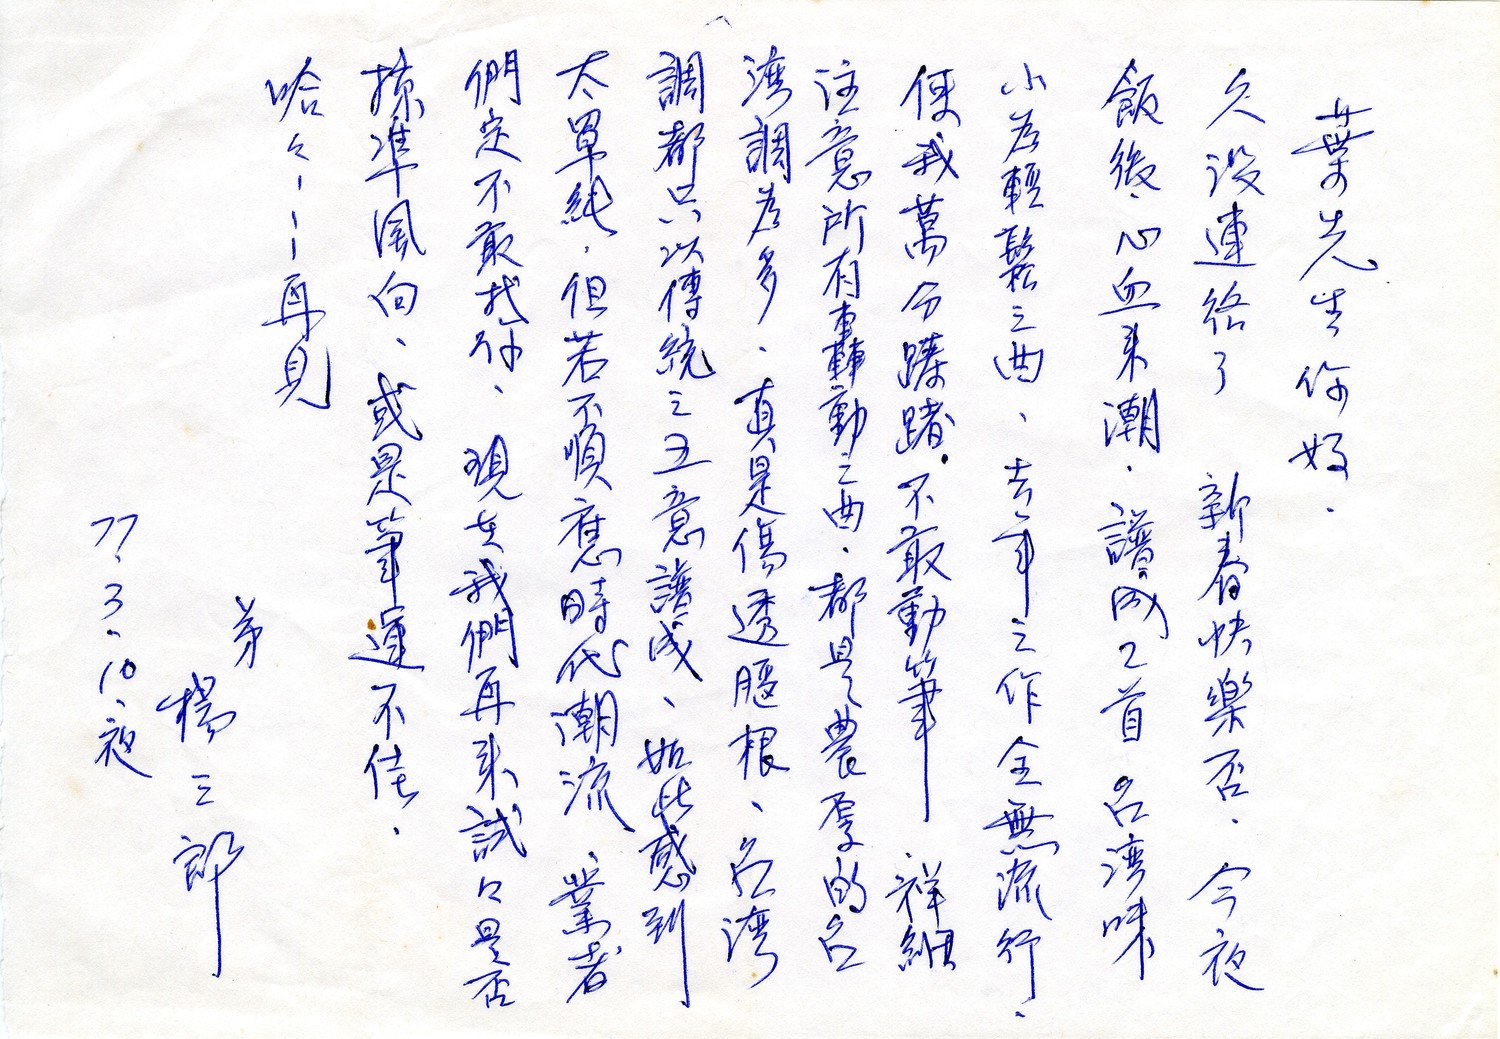 葉先生你好.
久沒連絡了 新春快樂否. 今夜
飯後、心血来潮. 譜成2首台湾味
小為輕鬆之曲、去年之作全無流行.
使我萬分躊躇.不敢動筆 祥細
注意所有轟動之曲.都是農厚的台
湾調為多、真是傷透腦根、台湾
調都只以傳統之五意譜成、如此感到
太單純.但若不順應時代潮流、業者
們定不敢找你、現在我們再来試々是否
探準風向、或是筆運不佳.
哈々---再見
弟 楊三郎
77.3.10.夜